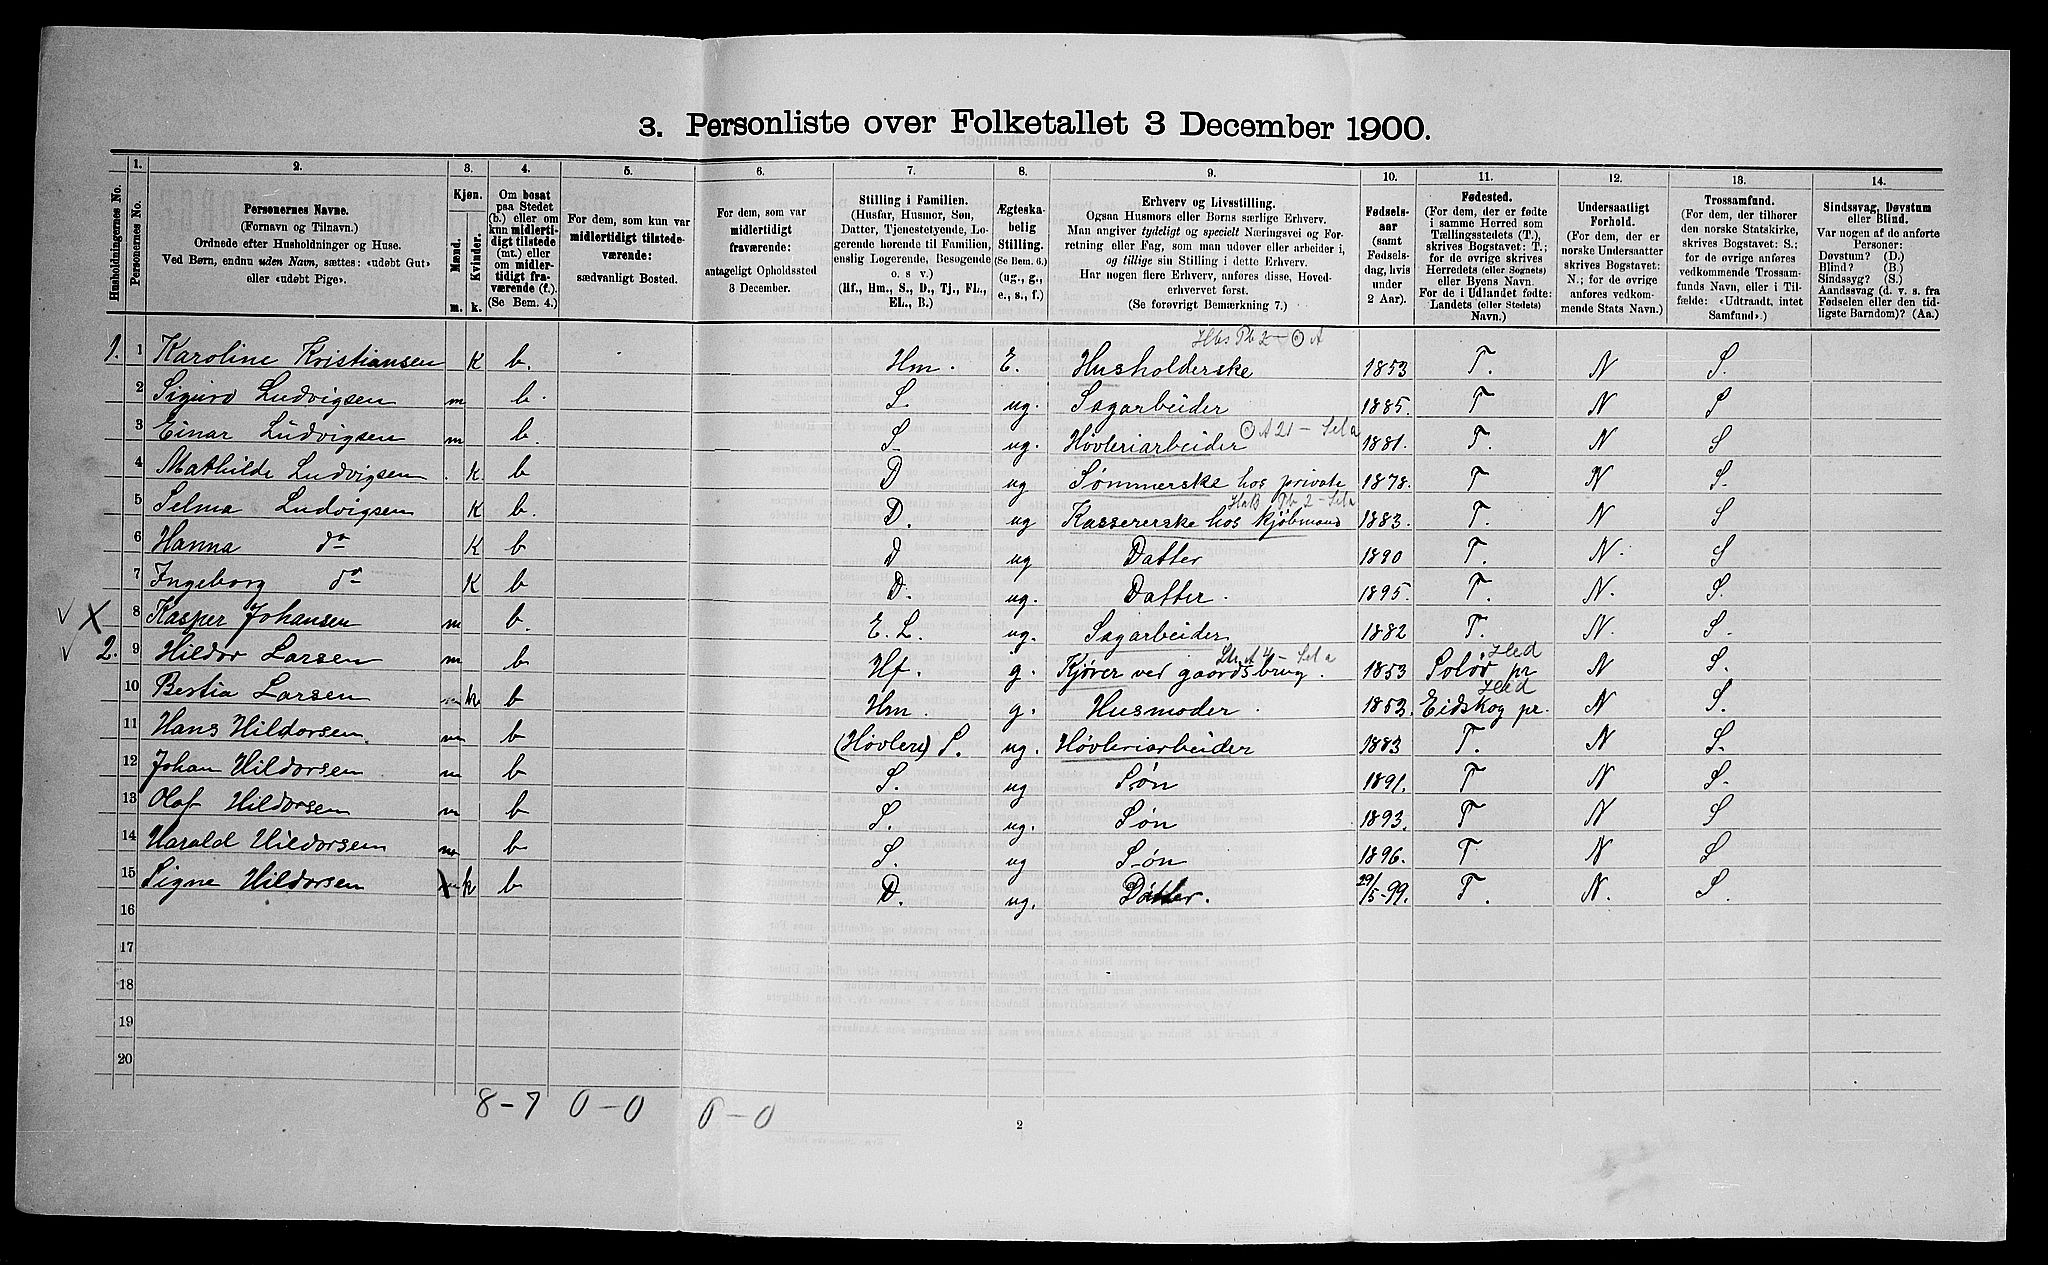 3. Personliste over Folketallet 3 December 1900.
1. 2. 3. 4. 5. 6. 7. 8. 9. 10. 11. 12. 13. 14.
Husholdningernes No.
Personernes No.
Personernes Navne.
(Fornavn og Tilnavn.)
Ordnede efter Husholdninger og Huse.
Ved Børn, endnu uden Navn, sættes: «udøbt Gut»
eller «udøbt Pige».
Kjøn.
Mænd. Kvinder.
m. k.
Om bosat
paa Stedet
(b.) eller om
kun midlerti-
digt tilstede
(mt.) eller
om midler-
tidigt fra-
værende (f.).
(Se Bem. 4.)
For dem, som kun var
midlertidigt tilstede-
værende:
sædvanligt Bosted.
For dem, som var
midlertidigt
fraværende:
antageligt Opholdssted
3 December.
Stilling i Familien.
(Husfar, Husmor, Søn,
Datter, Tjenestetyende, Lo-
gerende hørende til Familien,
enslig Logerende, Besøgende
o. s v.)
(Hf., Hm., S., D., Tj., FL.,
EL., B.)
Ægteska-
belig
Stilling.
(Se Bem. 6.)
(ug., g.,
e., s., f.)
Erhverv og Livsstilling.
Ogsaa Husmors eller Børns særlige Erhverv.
Man angiver tydeligt og specielt Næringsvei og For-
retning eller Fag, som man udøver eller arbeider i,
og tillige sin Stilling i dette Erhverv.
Har nogen flere Erhverv, anføres disse, Hoved-
erhvervet først.
(Se forøvrigt Bemærkning 7.)
Fødsels-
aar
(samt
Fødsels-
dag, hvis
under
2 Aar).
Fødested.
(For dem, der er fødte
i samme Herred som
Tællingsstedets (T.),
skrives Bogstavet: T.;
for de øvrige skrives
Herredets (eller Sognets)
eller Byens Navn.
For de i Udlandet fødte:
Landets (eller Stedets)
Navn.)
Undersaatligt
Forhold.
(For dem, der er
norske Undersaatter
skrives Bogstavet:
N.; for de øvrige
anføres vedkom-
mende Stats Navn.)
Trossamfund.
(For dem, der tilhører
den norske Statskirke,
skrives Bogstavet: S.;
for de øvrige anføres
vedkommende Trossam-
funds Navn, eller i Til-
fælde: «Udtraadt, intet
Samfund».)
Sindssvag, Døvstum
eller Blind.
Var nogen af de anførte
Personer:
Døvstum? (D.)
Blind? (B.)
Sindssyg? (S.)
Aandssvag (d. v. s. fra
Fødselen eller den tid-
ligste Barndom)? (Aa.)
1. 1 Karoline Kristiansen K b. Hm. E. Husholderske 1853 T. N S.
2 Sigurd Ludvigsen m b. S. ug. Sagarbeider 1885. T N S
3 Einar Ludvigsen m b. S. ug. Høvleriarbeider A 21 - 1881. T. N S
4 Mathilde Ludvigsen K b D ug Sømmerske hos private 1878. T N S.
5 Selma Ludvigsen K b. D. ug Kassererske hos kjøbmand 1883. T. N S
6 Hanna do K b D ug Datter 1890 T. N. S
7 Ingeborg do K b D. ug. Datter. 1895. T. N. S.
√ X 8 Kasper Johansen m b. E. L. ug. Sagarbeider 1882 T. N. S.
√ 2. 9 Hildor Larsen m b Hf. g. Kjører ved gaardsbrug. 1853 Solør pr Hed N S.
10 Bertia Larsen k b Hm. g. Husmoder. 1853. Eidskog pr. Hed N S.
11 Hans Hildorsen. m b (Høvleri) S. ug. Høvleriarbeider 1883 T. N S.
12 Johan Hildorsen m b S. ug Søn 1891. T N S.
13 Olaf Hildorsen m b S. ug. Søn 1893. T N S
14 Harald Hildorsen m b S. ug Søn 1896. T N S
15 Signe Hildorsen k b D. ug. Datter. 29/5-99. T. N. S.
16
17
18
19
20
8-7 0-0 0-0
2